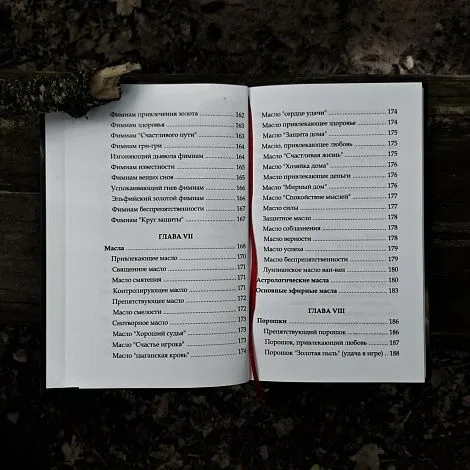 Фимиам привлечения золота 162
Фимиам здоровья 163
Фимиам "Счастливого пути" 163
Фимиам гри-гри 164
Изгоняющий дьявола фимиам 164
Фимиам известности 165
Фимиам вещих снов 165
Успокаивающий гнев фимиам 166
Эльфийский золотой фимиам 166
Фимиам беспрепятственности 167
Фимиам "Круг защиты" 167
ГЛАВА VII
Масла 168
Привлекающее масло 170
Священное масло 171
Масло смятения 171
Контролирующее масло 171
Препятствующее масло 172
Масло смелости 172
Снотворное масло 173
Масло "Хороший судья" 173
Масло "Счастье игрока" 173
Масло "цыганская кровь" 174
Масло "сердце удачи" 174
Масло привлекающее здоровье 174
Масло "Защита дома" 175
Масло, привлекающее любовь 175
Масло "Счастливая жизнь" 175
Масло "Хозяйка дома" 176
Масло привлекающее деньги 176
Масло "Мирный дом" 176
Масло "Спокойствие мыслей" 177
Масло силы 177
Защитное масло 177
Масло соблазнения 178
Масло верности 178
Масло успеха 179
Масло беспрепятственности 179
Луизианское масло ван-ван 180
Астрологические масла 180
Основные эфирные масла 183
ГЛАВА VIII
Порошки 186
Препятствующий порошок 186
Порошок, привлекающий любовь 187
Порошок "Золотая пыль" (удача в игре) 188